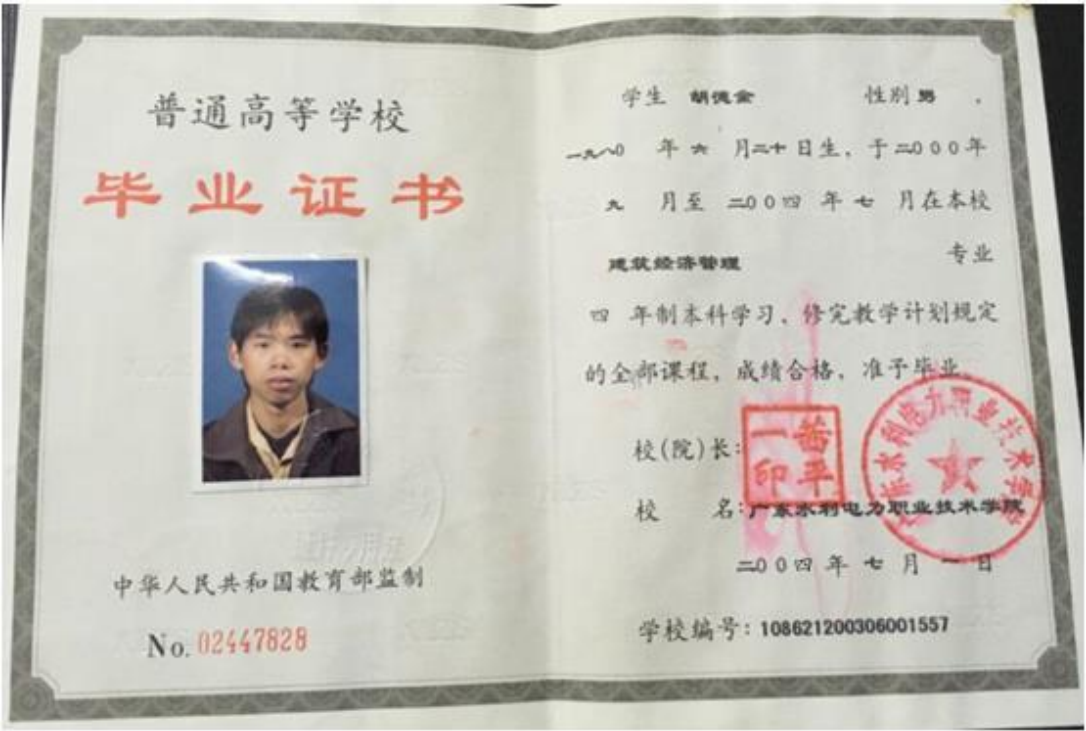 普通高等学校
毕业证书
中华人民共和国教育部监制
No. 02447828
学生 胡德金 性别 男 ，
一九八0 年 六 月二十日生，于二000年
九 月至 二00四 年 七 月在本校
建筑经济管理 专业
四 年制本科学习，修完教学计划规定
的全部课程，成绩合格，准予毕业。
校(院)长：
一茜
印平
校 名：广东水利电力职业技术学院
广东水利电力职业技术学院
二00四 年 七 月 一 日
学校编号：108621200306001557